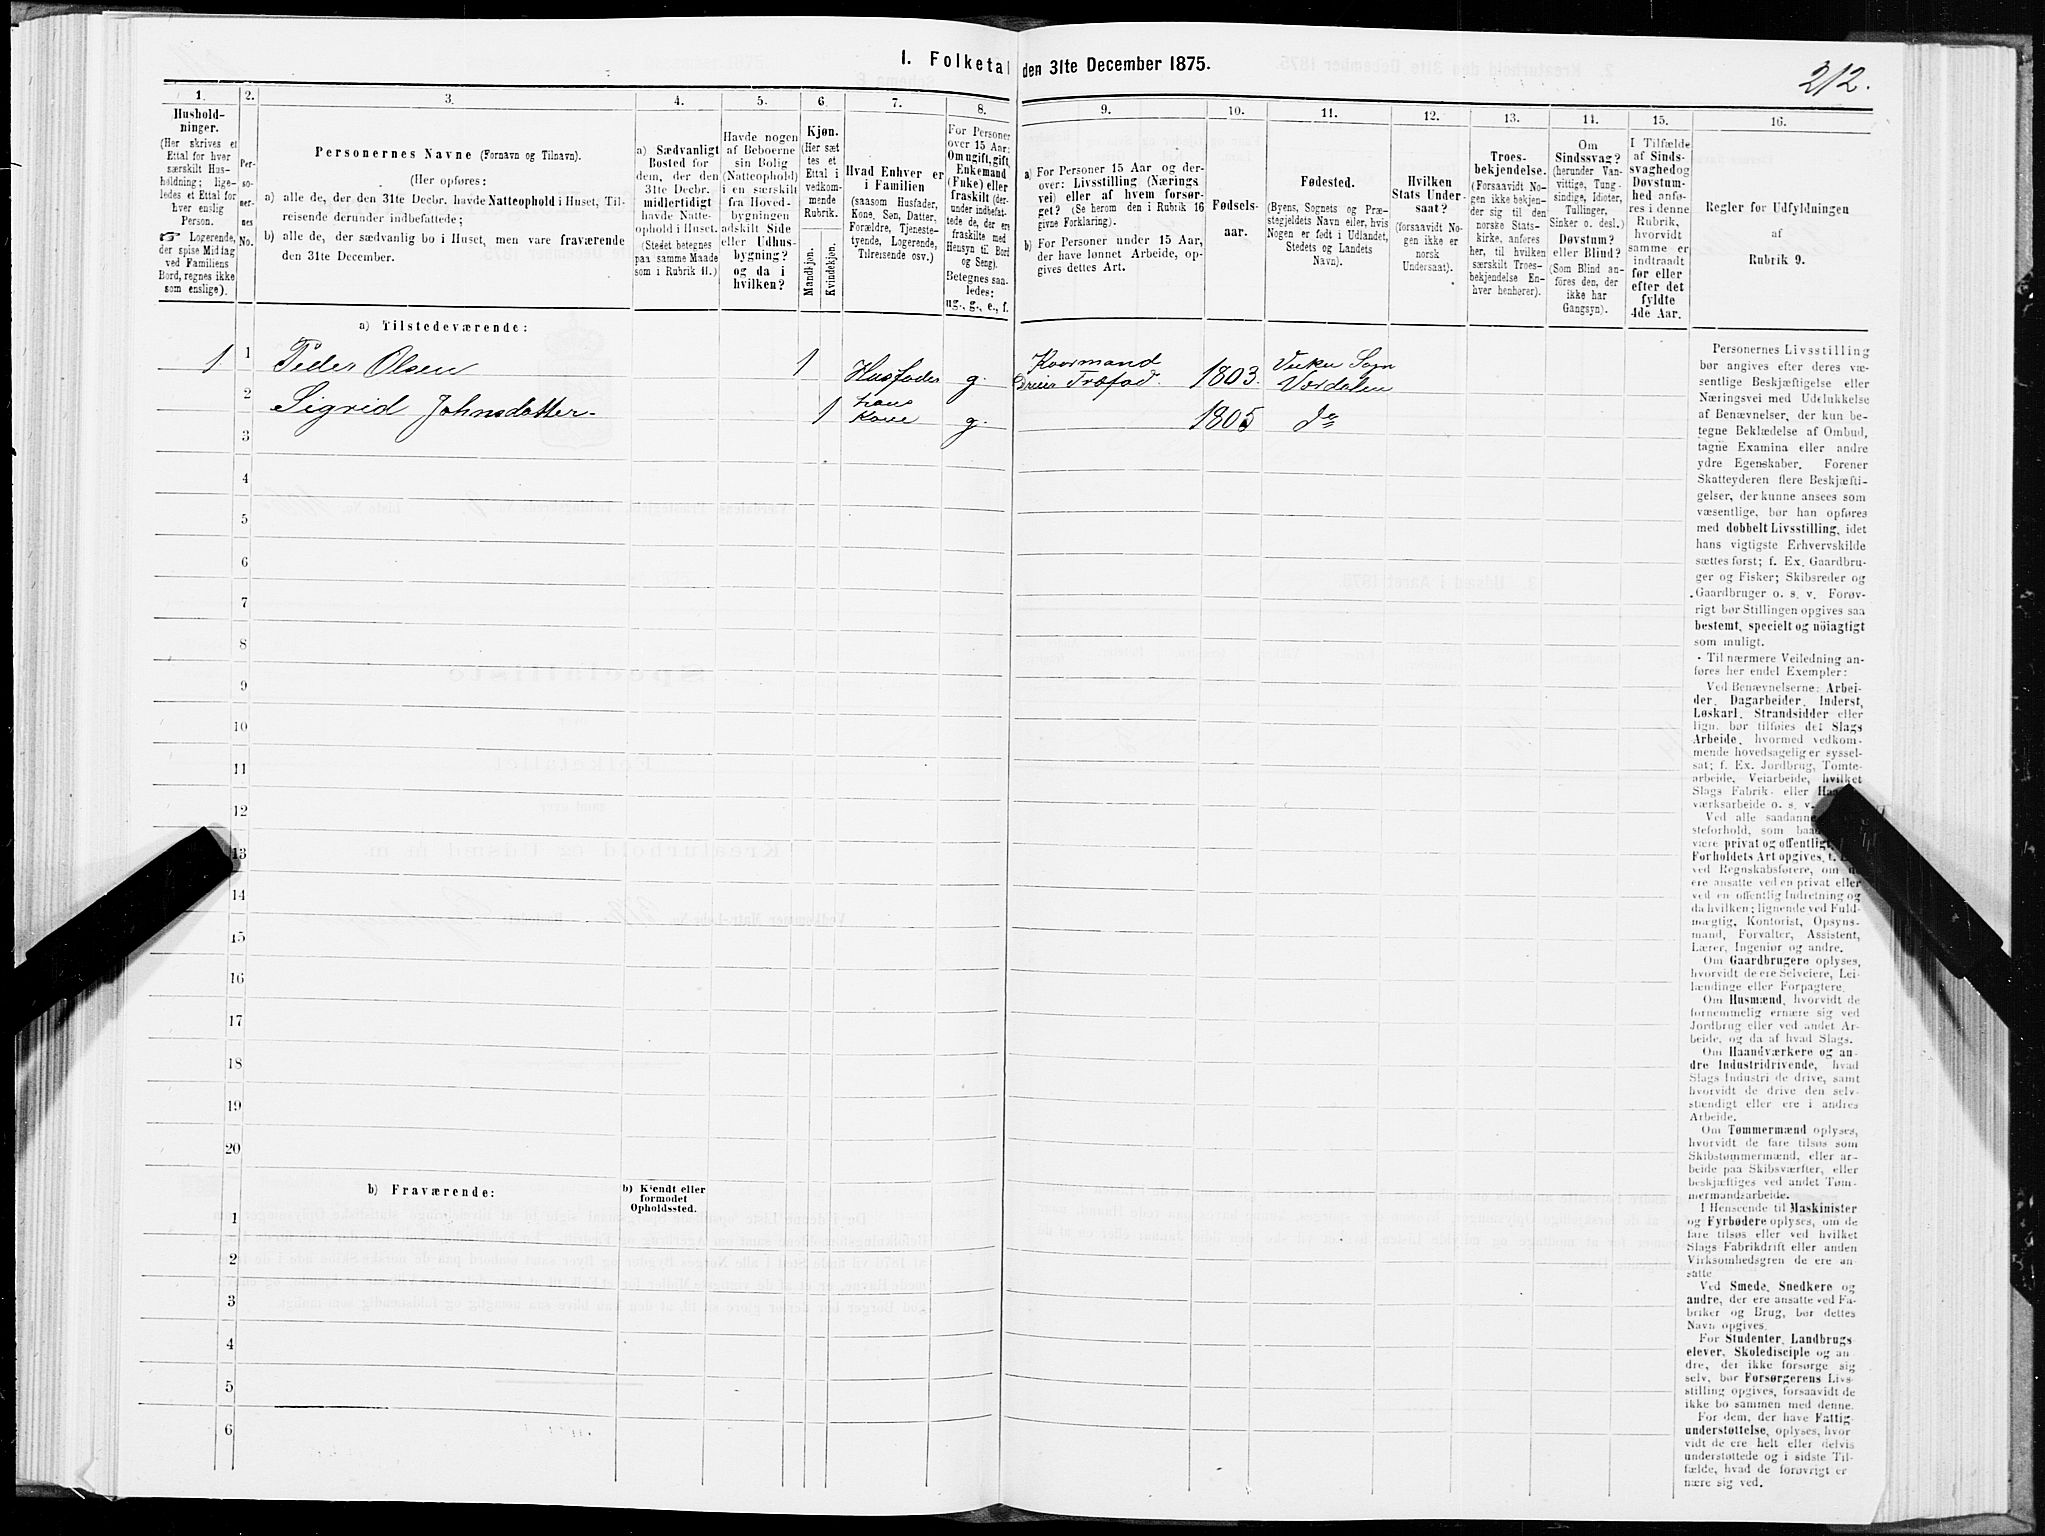 1. Folketal den 31te December 1875.
212.
1.
Hushold-
ninger.
(Her skrives et
Ettal for hver
særskilt Hus-
holdning; lige-
ledes et Ettal for
hver enslig
Person.
☞ Logerende,
der spise Middag
ved Familiens
Bord, regnes ikke
som enslige).
2.
Per-
so-
ner-
nes
No.
3.
Personernes Navne (Fornavn og Tilnavn).
(Her opføres:
a) alle de, der den 31te Decbr. havde Natteophold i Huset, Til-
reisende derunder indbefattede;
b) alle de, der sædvanlig bo i Huset, men vare fraværende
den 31te December.
4.
a) Sædvanligt
Bosted for
dem, der den
31te Decbr.
midlertidigt
havde Natte-
ophold i Huset.
(Stedet betegnes
paa samme Maade
som i Rubrik 11.)
5.
Havde nogen
af Beboerne
sin Bolig
(Natteophold)
i en særskilt
fra Hoved-
bygningen
adskilt Side
eller Udhus-
bygning?
og da i
hvilken?
6.
Kjøn.
(Her sæt
tes et
Ettal i
vedkom-
mende
Rubrik.
Mandkjøn.
Kvindekjøn.
7.
Hvad Enhver er
i Familien
(saasom Husfader,
Kone, Søn, Datter,
Forældre, Tjeneste-
tyende, Logerende,
Tilreisende osv.)
8.
For Personer
over 15 Aar:
Om ugift, gift,
Enkemand
(Enke) eller
fraskilt (der-
under indbefat-
tede de, der ere
fraskilte med
Hensyn til Bord
og Seng).
Betegnes saa-
ledes:
ug., g., e., f.
9.
a) For Personer 15 Aar og der-
over: Livsstilling (Nærings
vei) eller af hvem forsør-
get? (Se herom den i Rubrik 16
givne Forklaring).
b) For Personer under 15 Aar,
der have lønnet Arbeide, op-
gives dettes Art.
10.
Fødsels-
aar.
11.
Fødested.
(Byens, Sognets og Præ-
stegjeldets Navn eller, hvis
Nogen er født i Udlandet,
Stedets og Landets
Navn).
12.
Hvilken
Stats Under-
saat?
(forsaavidt No-
gen ikke er
norsk
Undersaat).
13.
Troes-
bekjendelse.
(Forsaavidt No-
gen ikke bekjen-
der sig til den
norske Stats-
kirke, anføres
her, til hvilken
særskilt Troes-
bekjendelse En-
hver henhører).
14.
Om
Sindssvag?
(herunder Van-
vittige, Tung-
sindige, Idioter,
Tullinger,
Sinker o. desl.)
Døvstum?
eller Blind?
(Som Blind an-
føres den, der
ikke har
Gangsyn).
15.
I Tilfælde
af Sinds-
svaghed og
Døvstum-
hed anfø-
res i denne
Rubrik,
hvorvidt
samme er
indtraadt
før eller
efter det
fyldte
4de Aar.
16.
Regler for Udfyldningen
af
Rubrik 9.
a) Tilstedeværende:
1 1 Peder Olsen 1 Husfader g. 1803. Værdalen
2 Sigrid Johnsdatter 1 hans Kone g. 1805 do
3
4
5
6
7
8
9
10
11
12
13
14
15
16
17
18
19
20
b) Fraværende:
b) Kjendt eller
formodet
Opholdssted.
1
2
3
4
5
6
Personernes Livsstilling
bør angives efter deres væ-
sentlige Beskjæftigelse eller
Næringsvei med Udelukkelse
af Benævnelser, der kun be-
tegne Beklædelse af Ombud,
tagne Examina eller andre
ydre Egenskaber. Forener
Skatteyderen flere Beskjæfti-
gelser, der kunne ansees som
væsentlige, bør han opføres
med dobbelt Livsstilling, idet
hans vigtigste Erhvervskilde
sættes først; f. Ex. Gaardbru-
ger og Fisker; Skibsreder og
Gaardbruger o. s. v. Forøv-
rigt bør Stillingen opgives saa
bestemt, specielt og nöiagtigt
som muligt.
Til nærmere Veiledning an-
føres her endel Exempler:
Ved Benævnelserne: Arbei-
der, Dagarbeider, Inderst,
Løskarl, Strandsidder eller
lign. bør tilføies det Slags
Arbeide, hvormed vedkom-
mende hovedsagelig er syssel-
sat; f. Ex. Jordbrug, Tomte-
arbeide, Veiarbeide, hvilket
Slags Fabrik- eller
værksarbeide o. s. v.
Ved alle saadanne
steforhold, som
være privat og offentligt,
Forholdets Art opgives,
ved Regnskabsførere, om
ere ansatte ved en privat eller
ved en offentlig Indretning og
da hvilken; lignende ved Fuld-
mægtig, Kontorist, Opsyns-
mand, Forvalter, Assistent,
Lærer, Ingeniør og andre.
Om Gaardbrugere oplyses,
hvorvidt de ere Selveiere, Lei-
lændinge eller Forpagtere.
Om Husmænd, hvorvidt de
fornemmelig ernære sig ved
Jordbrug eller ved andet Ar-
beide, og da af hvad Slags.
Om Haandværkere og an-
dre Industridrivende, hvad
Slags Industri de drive, samt
hvorvidt de drive den selv-
stændigt eller ere i andres
Arbeide.
Om Tømmermænd oplyses,
hvorvidt de fare tilsøs som
Skibstømmermænd, eller ar-
beide paa Skibsværfter, eller
beskjæftiges ved andet Tøm-
mermandsarbeide.
I Henseende til Maskinister
og Fyrbødere oplyses, om de
fare tilsøs eller ved hvilket
Slags Fabrikdrift eller anden
Virksomhedsgren de ere an-
satte
Ved Smede, Snedkere og
andre, der ere ansatte ved Fa-
briker og Brug, bør dettes
Navn opgives.
For Studenter, Landbrugs
elever, Skoledisciple og an
dre, der ikke forsørge sig
selv, bør Forsørgerens Livs-
stilling opgives, forsaavidt de
ikke bo sammen med denne.
For dem, der have Fattig-
understøttelse, oplyses, hvor
vidt de ere helt eller delvis
understøttede og i sidste Til-
fælde, hvad de forøvrigt er
nære sig ved.